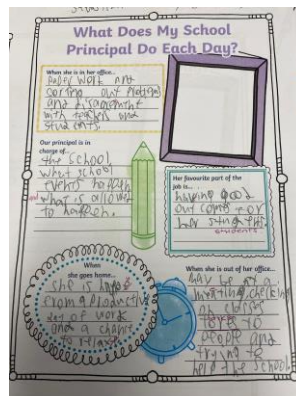 What Does My School
Principal Do Each Day?
When she is in her office...
Paper work and
out problems
and disagreement
with teachers and
students.
Our principal is in
charge of...
the school,
what school
events happen
what is allowed
to happen.
Her favourite part of the
job is...
having good
out comes for
her students
students
When
she goes home...
she is happy
from a productive
day of work
and a chance
to relax
When she is out of her office...
may be at a
meeting checking
on classes
to
people and
trying to
help the school.